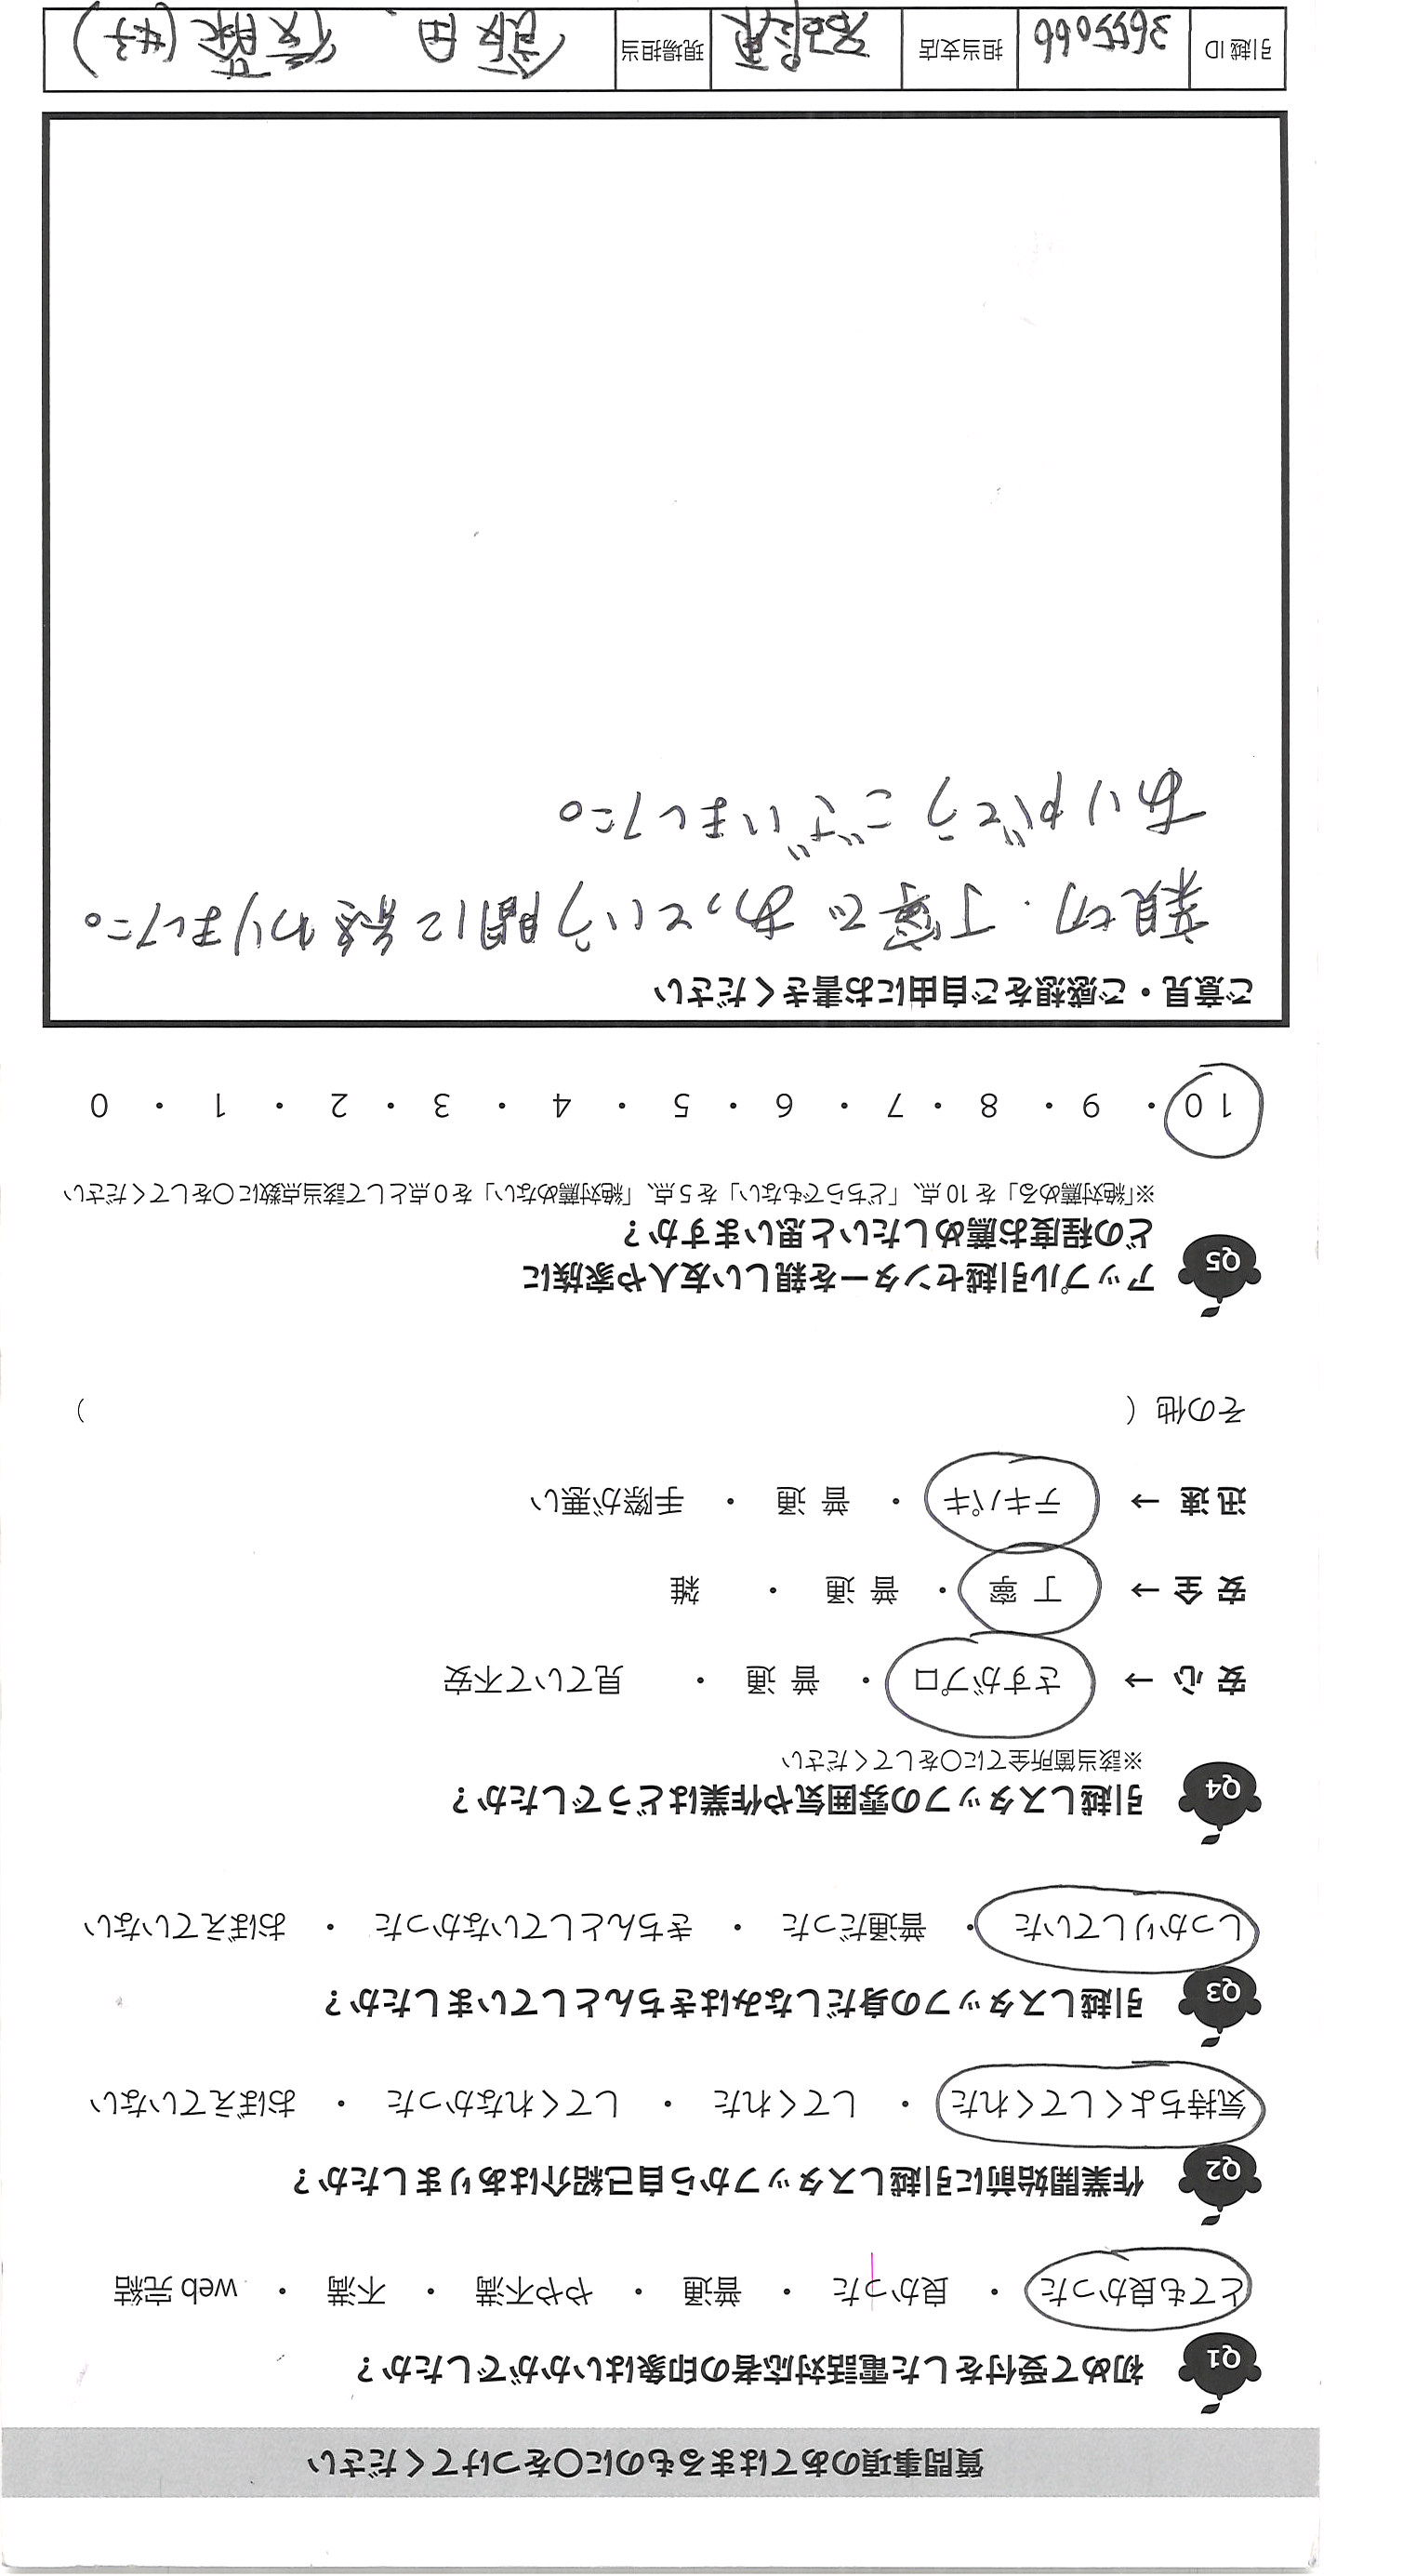 質問事項のあてはまるものに〇をつけてください
Q1 初めて受付をした電話対応者の印象はいかがでしたか?
とても良かった ・ 良かった ・ 普通 ・ やや不満 ・ 不満 ・ web 完結
Q2 作業開始前に引越しスタッフから自己紹介はありましたか?
気持ちよくしてくれた ・ してくれた ・ してくれなかった ・ おぼえていない
Q3 引越しスタッフの身だしなみはきちんとしていましたか?
しっかりしていた ・ 普通だった ・ きちんとしていなかった ・ おぼえていない
Q4 引越しスタッフの雰囲気や作業はどうでしたか?
※該当箇所全てに〇をしてください
安心 → さすがプロ ・ 普通 ・ 見ていて不安
安全 → 丁寧 ・ 普通 ・ 雑
迅速 → テキパキ ・ 普通 ・ 手際が悪い
その他 ( )
Q5 アップル引越センターを親しい友人や家族に
どの程度お薦めしたいと思いますか?
※「絶対薦める」を 10 点、「どちらでもない」を 5 点、「絶対薦めない」を 0 点として該当点数に〇をしてください
10 ・ 9 ・ 8 ・ 7 ・ 6 ・ 5 ・ 4 ・ 3 ・ 2 ・ 1 ・ 0
ご意見・ご感想をご自由にお書きください
親切・丁寧で あっという間に終わりました。
ありがとうございました。
引越 ID 3655066 担当支店 現場担当 飯田 、 後藤(好)